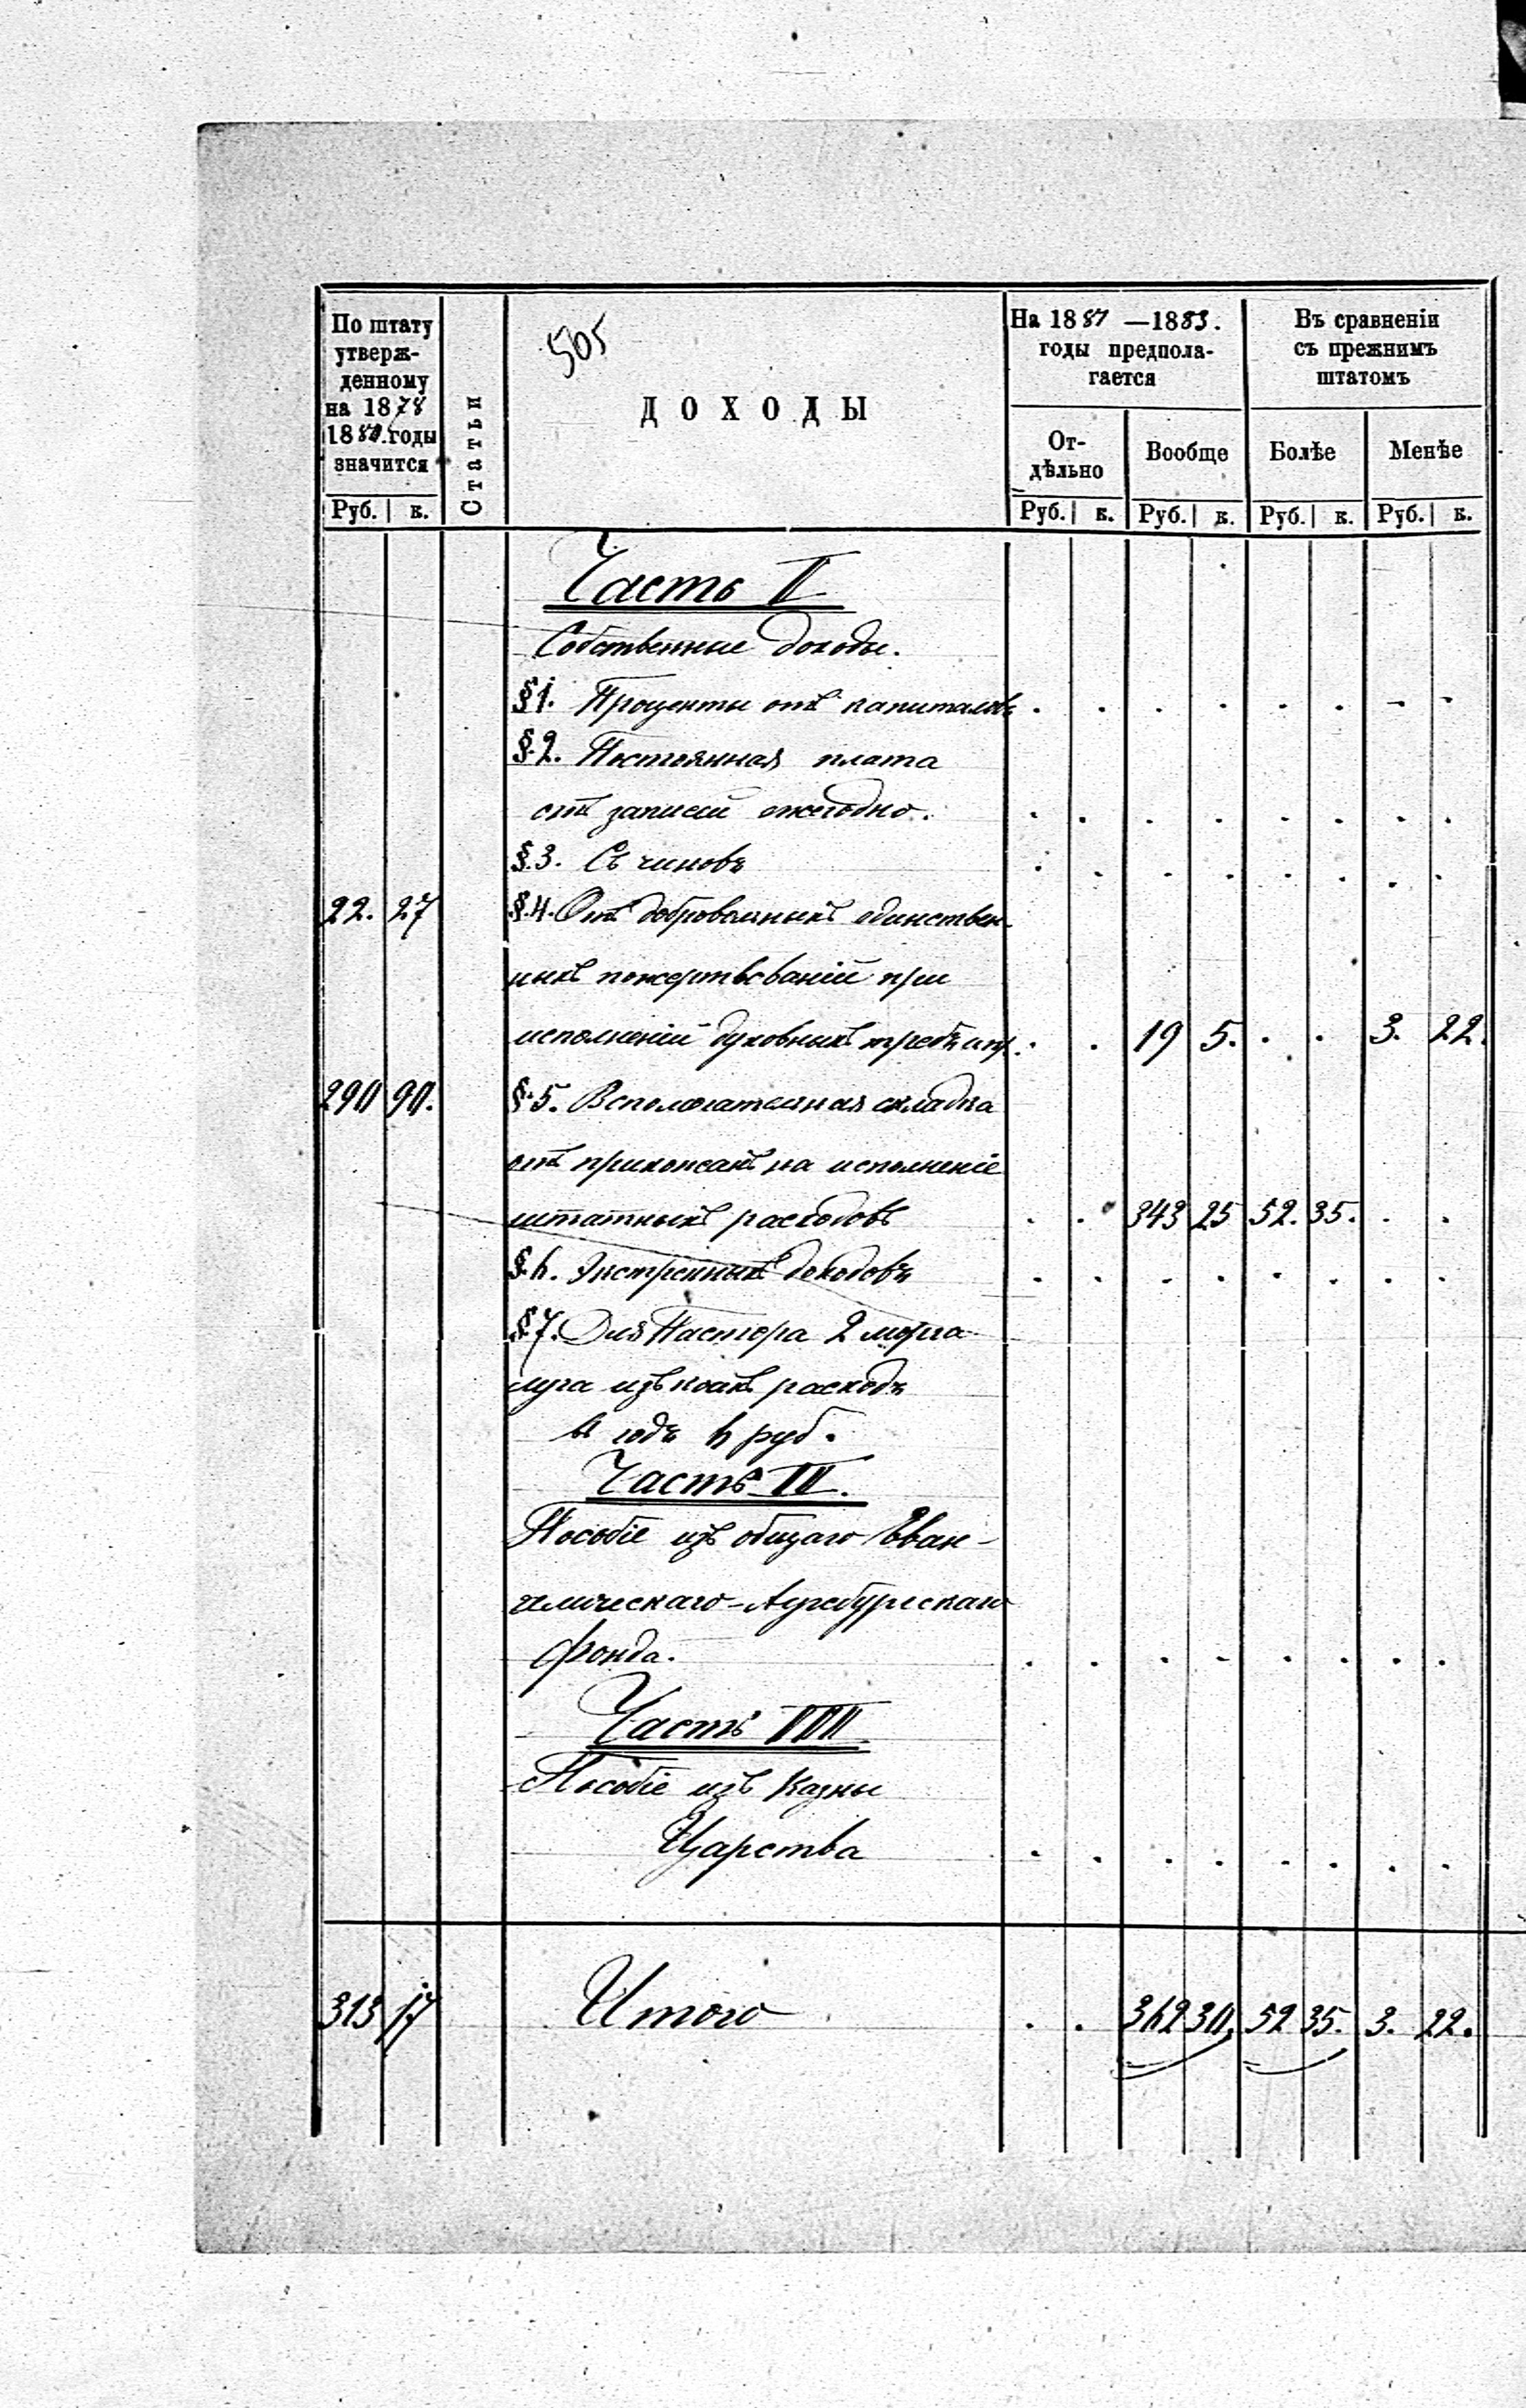 505
По штату утвержденному на 1878 1880 годы значится
Статьи
ДОХОДЫ
На 1881 —1883. годы предполагается
Въ сравненіи съ прежнимъ штатомъ
Отдѣльно
Вообще
Болѣе
Менѣе
Руб. к. Руб. к. Руб. к. Руб. к. Руб. к.
Часть I
Собственные доходы.
§ 1. Проценты отъ капиталовъ
§ 2. Постоянная плата
отъ записей ежегодно.
§. 3. Съ чиновъ
22. 27 §. 4. Отъ добровольныхъ единствен-
ныхъ пожертвованій при
исполненій духовныхъ требъ 19 5. 3. 22.
290 90. §. 5. Вспомогательная складка
отъ прихожанъ на исполненіе
штатныхъ расходовъ 343 25 52. 35.
§. 6. Экстренныхъ доходовъ
§. 7. Для Пастора 2 морга
луга расходъ
въ годъ 6 руб.
Часть II.
Пособіе изъ общаго Еван-
гелическаго-Аугсбургскаго
фонда.
Часть III
Пособіе изъ Казны
Царства
313 17 Итого 362 30, 52 35. 3. 22.